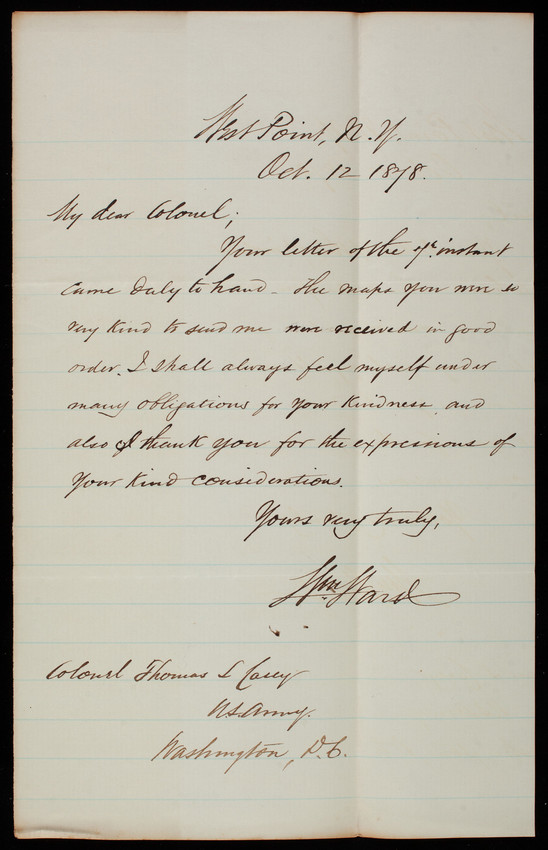 West Point, N.Y.
Oct. 12 1878.
My dear Colonel;
Your letter of the 7th instant
came Duly to hand - The maps you were so
very kind to send me were received in good
order. I shall always feel myself under
many obligations for your kindness and
also I thank you for the expressions of
your kind considerations.
Yours very truly,
Wm Ward
Colonel Thomas L Casey
U.S. Army.
Washington, D.C.